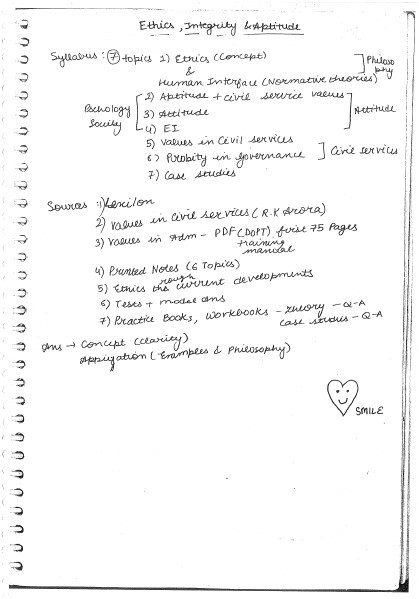 Ethics, Integrity & Aptitude
Syllabus: 7 topics 1) Ethics (Concept)
&
Human Interface (Normative theories)
Philosophy
2) Aptitude + civil service values
3) Attitude
4) EI
Pschology
Society
Attitude
5) Values in Civil services
6) Probity in governance
7) Case studies
Civil services
Sources: 1) Lexicon
2) Values in Civil services (R.K Arora)
3) Values in Adm - PDF (DOPT) first 75 Pages
training
manual
4) Printed Notes (6 Topics)
5) Ethics through the current developments
6) Tests + model ans
7) Practice Books, Workbooks - Theory - Q-A
Case studies - Q-A
Ans → Concept (clearity)
Application (Examples & Philosophy)
SMILE